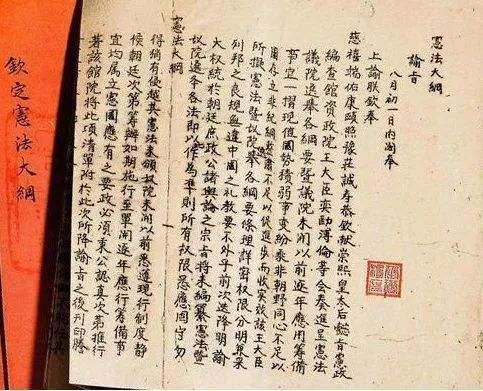 憲法大綱
諭旨
八月初一日內閣奉
上諭朕欽奉
慈禧端佑康頤照豫莊誠壽恭欽獻崇熙皇太后懿旨憲政
編查館資政院王大臣奕劻溥倫等會奏進呈憲法
議院選舉各綱要暨議院未開以前逐年應用籌備
事宜一摺現值國勢積弱事變紛乘非朝野同心不足以
圖存立非紀綱整肅不足以促進步而收實效該王大臣
所擬憲法暨議院選舉各綱要條理詳密權限分明兼采
列邦之良規無違中國之禮教要不外乎前次迭降明諭
大權統於朝廷庶政公諸輿論之宗旨將來編纂憲法暨
議院選舉各法即以作為準則所有權限悉應固守勿
憲法大綱
得稍有侵越其憲法未頒議院未開以前悉遵現行制度靜
候朝廷次第籌辦如期施行至單開逐年應行籌備事
宜均屬立憲國應有之要政必須秉公認真次第推行
著該館院將此項清單附於此次所降諭旨之後刊印謄
欽定憲法大綱